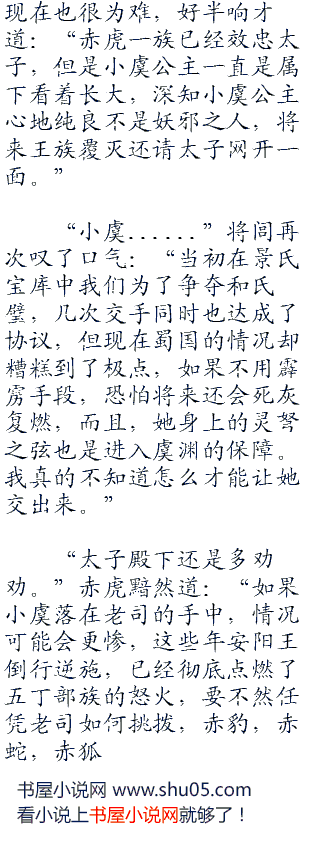 现在也很为难，好半响才
道：“赤虎一族已经效忠太
子，但是小虞公主一直是属
下看着长大，深知小虞公主
心地纯良不是妖邪之人，将
来王族覆灭还请太子网开一
面。”
“小虞......”将闾再
次叹了口气：“当初在景氏
宝库中我们为了争夺和氏
璧，几次交手同时也达成了
协议，但现在蜀国的情况却
糟糕到了极点，如果不用霹
雳手段，恐怕将来还会死灰
复燃，而且，她身上的灵弩
之弦也是进入虞渊的保障。
我真的不知道怎么才能让她
交出来。”
“太子殿下还是多劝
劝。”赤虎黯然道：“如果
小虞落在老司的手中，情况
可能会更惨，这些年安阳王
倒行逆施，已经彻底点燃了
五丁部族的怒火，要不然任
凭老司如何挑拨，赤豹，赤
蛇，赤狐
书屋小说网 www.shu05.com
看小说上书屋小说网就够了！